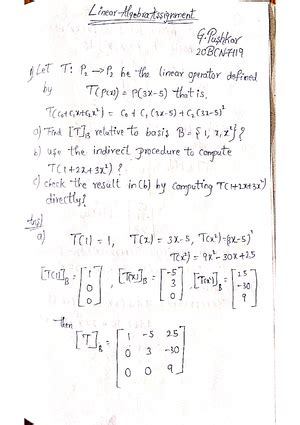 Linear Algebra Assignment
G. Pushkar
20BCN7119
1) Let T: P₂ → P₂ be the linear operator defined
by T(P(x)) = P(3x-5) that is,
T(C₀+C₁x+C₂x²) = C₀ + C₁(3x-5) + C₂(3x-5)²
a) Find [T]B relative to basis B = {1, x, x²}?
b) use the indirect procedure to compute
T(1+2x+3x²)?
c) check the result in (b) by computing T(1+2x+3x²)
directly?
Ans)
a) T(1) = 1, T(x) = 3x-5, T(x²)=(3x-5)²
T(x²) = 9x²-30x+25
[T(1)]B = [1 0 0], [T(x)]B = [-5 3 0], [T(x²)]B = [25 -30 9]
then
[T]B = [1 -5 25
0 3 -30
0 0 9]